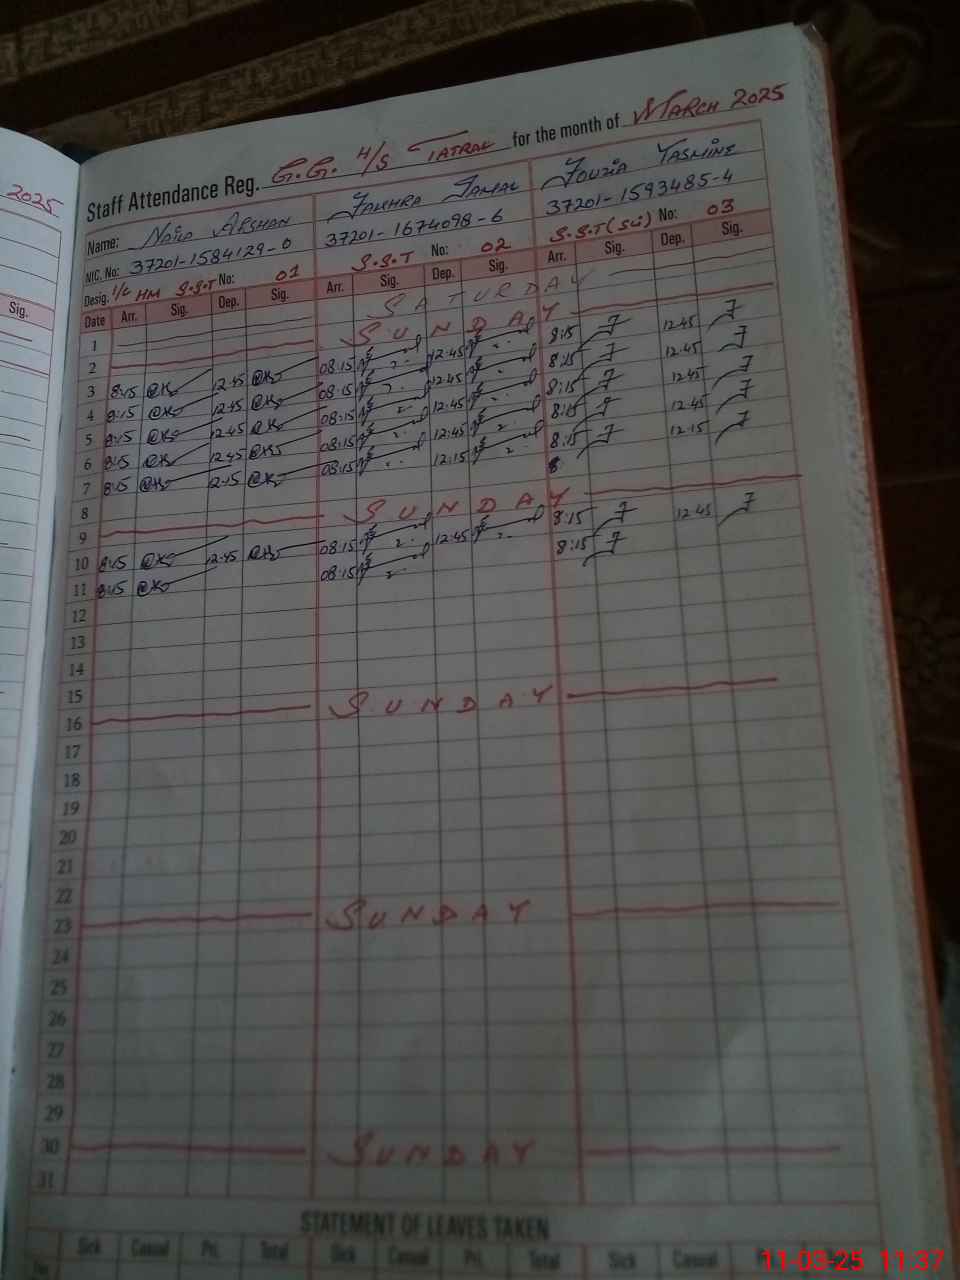 2025
Sig.
Staff Attendance Reg. G.G. H/S TATRAL for the month of MARCH 2025
Name: NAILA ARSHAN FAKHRA JAMAL FOUZIA YASMINE
NIC. No: 37201-1584129-0 37201-1674098-6 37201-1593485-4
Desig. I/C HM S.S.T No: 01 S.S.T No: 02 S.S.T (Sci) No: 03
Date Arr. Sig. Dep. Sig. Arr. Sig. Dep. Sig. Arr. Sig. Dep. Sig.
1 SATURDAY
2 SUNDAY
3 8:15 12:45 08:15 12:45 8:15 12:45
4 8:15 12:45 08:15 12:45 8:15 12:45
5 8:15 12:45 08:15 12:45 8:15 12:45
6 8:15 12:45 08:15 12:45 8:15 12:45
7 8:15 12:15 08:15 12:15 8:15 12:15
8
9 SUNDAY
10 8:15 12:45 08:15 12:45 8:15 12:45
11 8:15 08:15 8:15
12
13
14
15
16 SUNDAY
17
18
19
20
21
22
23 SUNDAY
24
25
26
27
28
29
30 SUNDAY
31
STATEMENT OF LEAVES TAKEN
Sick Casual Pri. Total Sick Casual Pri. Total Sick Casual
11-03-25 11:37